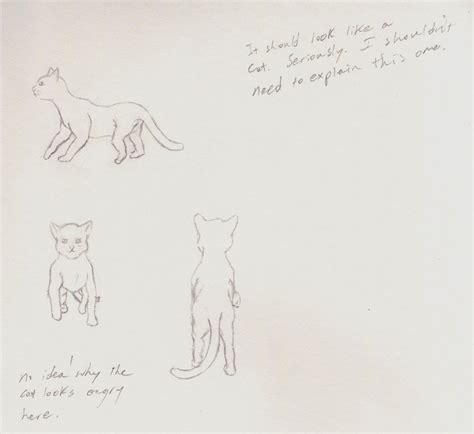 It should look like a
cat. Seriously. I shouldn't
need to explain this one.
No idea why the
cat looks angry
here.